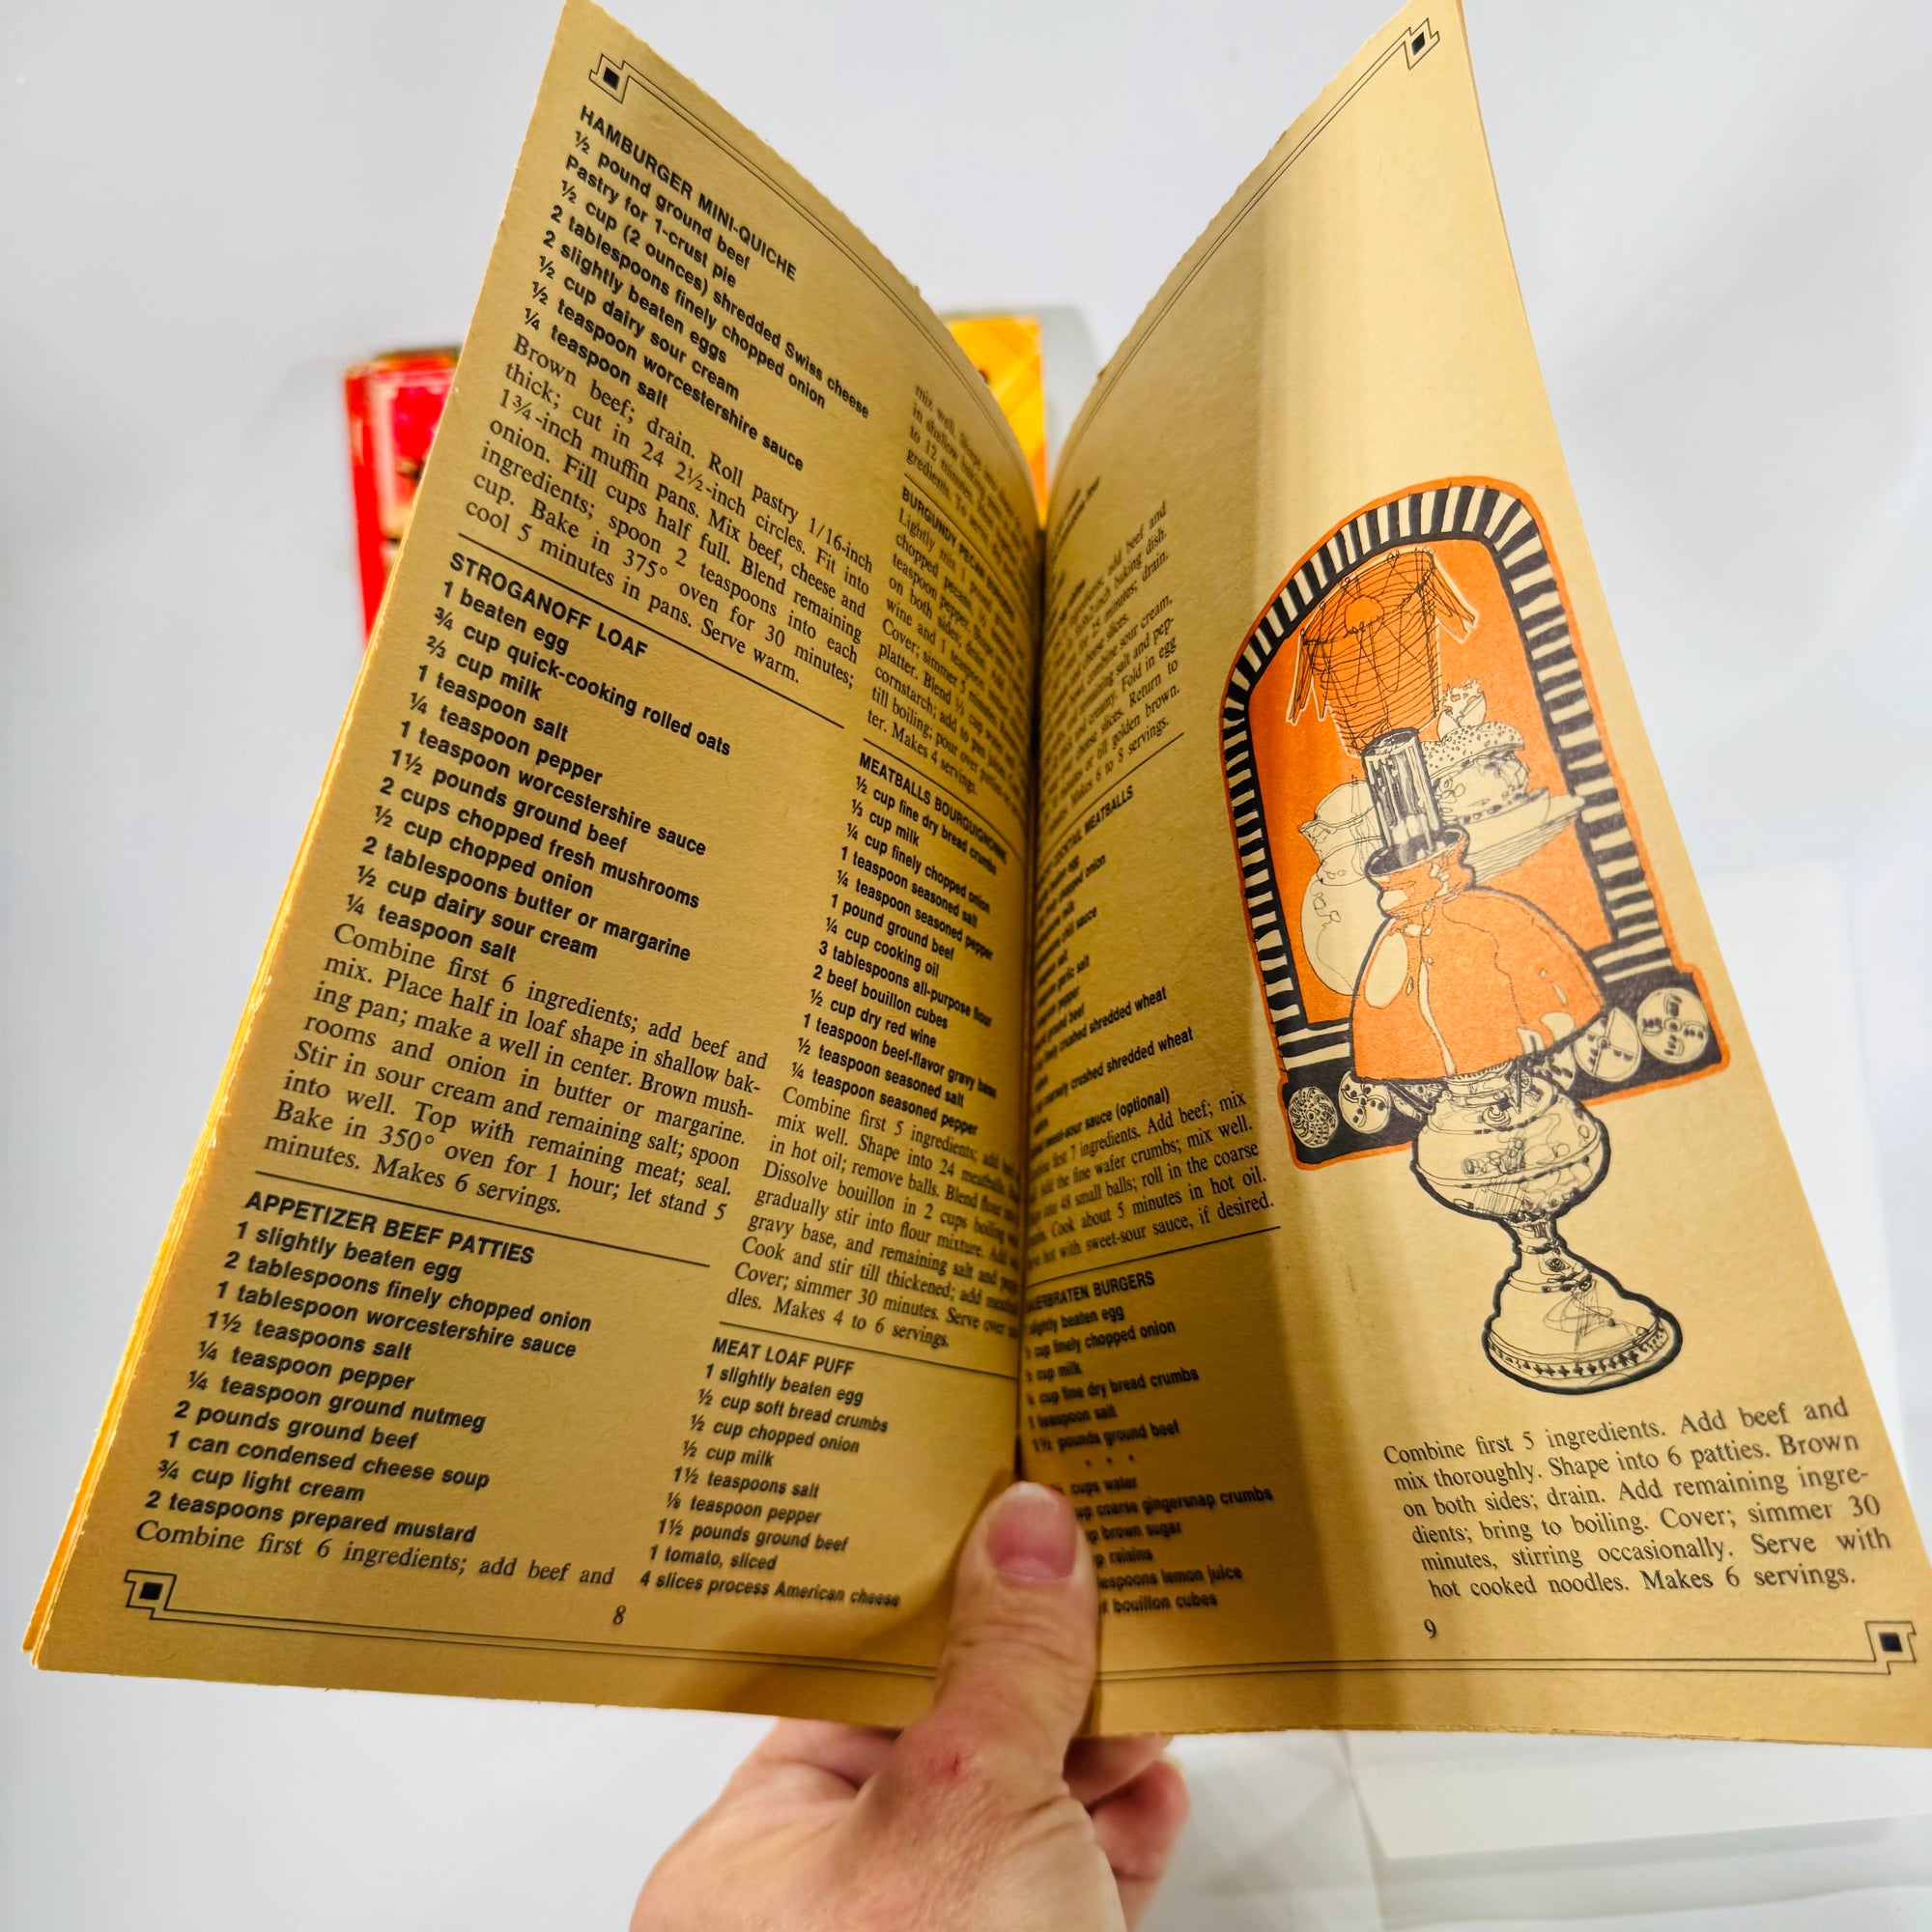 HAMBURGER MINI-QUICHE
½ pound ground beef
Pastry for 1-crust pie
½ cup (2 ounces) shredded Swiss cheese
2 tablespoons finely chopped onion
2 slightly beaten eggs
½ cup dairy sour cream
½ teaspoon worcestershire sauce
¼ teaspoon salt
Brown beef; drain. Roll pastry 1/16-inch
thick; cut in 24 2½-inch circles. Fit into
1¾-inch muffin pans. Mix beef, cheese and
onion. Fill cups half full. Blend remaining
ingredients; spoon 2 teaspoons into each
cup. Bake in 375° oven for 30 minutes;
cool 5 minutes in pans. Serve warm.
STROGANOFF LOAF
1 beaten egg
¾ cup quick-cooking rolled oats
⅔ cup milk
1 teaspoon salt
¼ teaspoon pepper
1 teaspoon worcestershire sauce
1½ pounds ground beef
2 cups chopped fresh mushrooms
½ cup chopped onion
2 tablespoons butter or margarine
½ cup dairy sour cream
¼ teaspoon salt
Combine first 6 ingredients; add beef and
mix. Place half in loaf shape in shallow bak-
ing pan; make a well in center. Brown mush-
rooms and onion in butter or margarine.
Stir in sour cream and remaining salt; spoon
into well. Top with remaining meat; seal.
Bake in 350° oven for 1 hour; let stand 5
minutes. Makes 6 servings.
APPETIZER BEEF PATTIES
1 slightly beaten egg
2 tablespoons finely chopped onion
1 tablespoon worcestershire sauce
1½ teaspoons salt
¼ teaspoon pepper
¼ teaspoon ground nutmeg
2 pounds ground beef
1 can condensed cheese soup
¾ cup light cream
2 teaspoons prepared mustard
Combine first 6 ingredients; add beef and
mix well.
in shallow baking
to 12 minutes
gredients. To
BURGUNDY PECAN
Lightly mix 1 pound
chopped pecans, ½
teaspoon pepper.
on both sides;
wine and 1 teaspoon
Cover; simmer 5
platter. Blend ⅓ cup
cornstarch; add to pan
till boiling; pour over
ter. Makes 4 servings.
MEATBALLS BOURGUIGNONNE
½ cup fine dry bread crumbs
⅓ cup milk
¼ cup finely chopped onion
1 teaspoon seasoned salt
¼ teaspoon seasoned pepper
1 pound ground beef
¼ cup cooking oil
3 tablespoons all-purpose flour
2 beef bouillon cubes
½ cup dry red wine
1 teaspoon beef-flavor gravy base
½ teaspoon seasoned salt
¼ teaspoon seasoned pepper
Combine first 5 ingredients; add
mix well. Shape into 24 meatballs.
in hot oil; remove balls. Blend flour
Dissolve bouillon in 2 cups boiling
gradually stir into flour mixture. Add
gravy base, and remaining salt and
Cook and stir till thickened; add
Cover; simmer 30 minutes. Serve over
dles. Makes 4 to 6 servings.
MEAT LOAF PUFF
1 slightly beaten egg
½ cup soft bread crumbs
½ cup chopped onion
½ cup milk
1½ teaspoons salt
⅛ teaspoon pepper
1½ pounds ground beef
1 tomato, sliced
4 slices process American cheese
8
add beef and
baking dish.
minutes; drain.
cheese slices.
combine sour cream,
remaining salt and pep-
creamy. Fold in egg
cheese slices. Return to
or till golden brown.
Makes 6 to 8 servings.
COCKTAIL MEATBALLS
egg
chopped onion
milk
chili sauce
salt
garlic salt
pepper
ground beef
finely crushed shredded wheat
coarsely crushed shredded wheat
sweet-sour sauce (optional)
first 7 ingredients. Add beef; mix
Add the fine wafer crumbs; mix well.
into 48 small balls; roll in the coarse
Cook about 5 minutes in hot oil.
hot with sweet-sour sauce, if desired.
BURGERS
slightly beaten egg
cup finely chopped onion
cup milk
cup fine dry bread crumbs
1 teaspoon salt
1½ pounds ground beef
• • •
cups water
coarse gingersnap crumbs
brown sugar
raisins
lemon juice
bouillon cubes
Combine first 5 ingredients. Add beef and
mix thoroughly. Shape into 6 patties. Brown
on both sides; drain. Add remaining ingre-
dients; bring to boiling. Cover; simmer 30
minutes, stirring occasionally. Serve with
hot cooked noodles. Makes 6 servings.
9